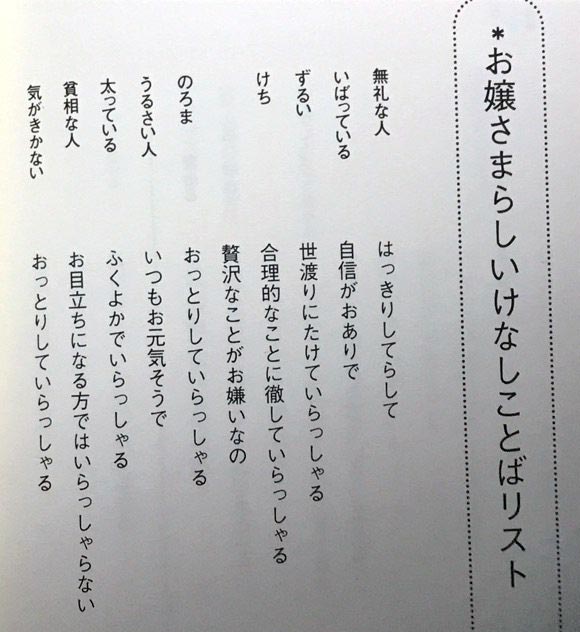 *お嬢さまらしいけなしことばリスト
無礼な人　はっきりしてらして
いばっている　自信がおありで
ずるい　世渡りにたけていらっしゃる
けち　合理的なことに徹していらっしゃる
贅沢なことがお嫌いなの
のろま　おっとりしていらっしゃる
うるさい人　いつもお元気そうで
太っている　ふくよかでいらっしゃる
貧相な人　お目立ちになる方ではいらっしゃらない
気がきかない　おっとりしていらっしゃる